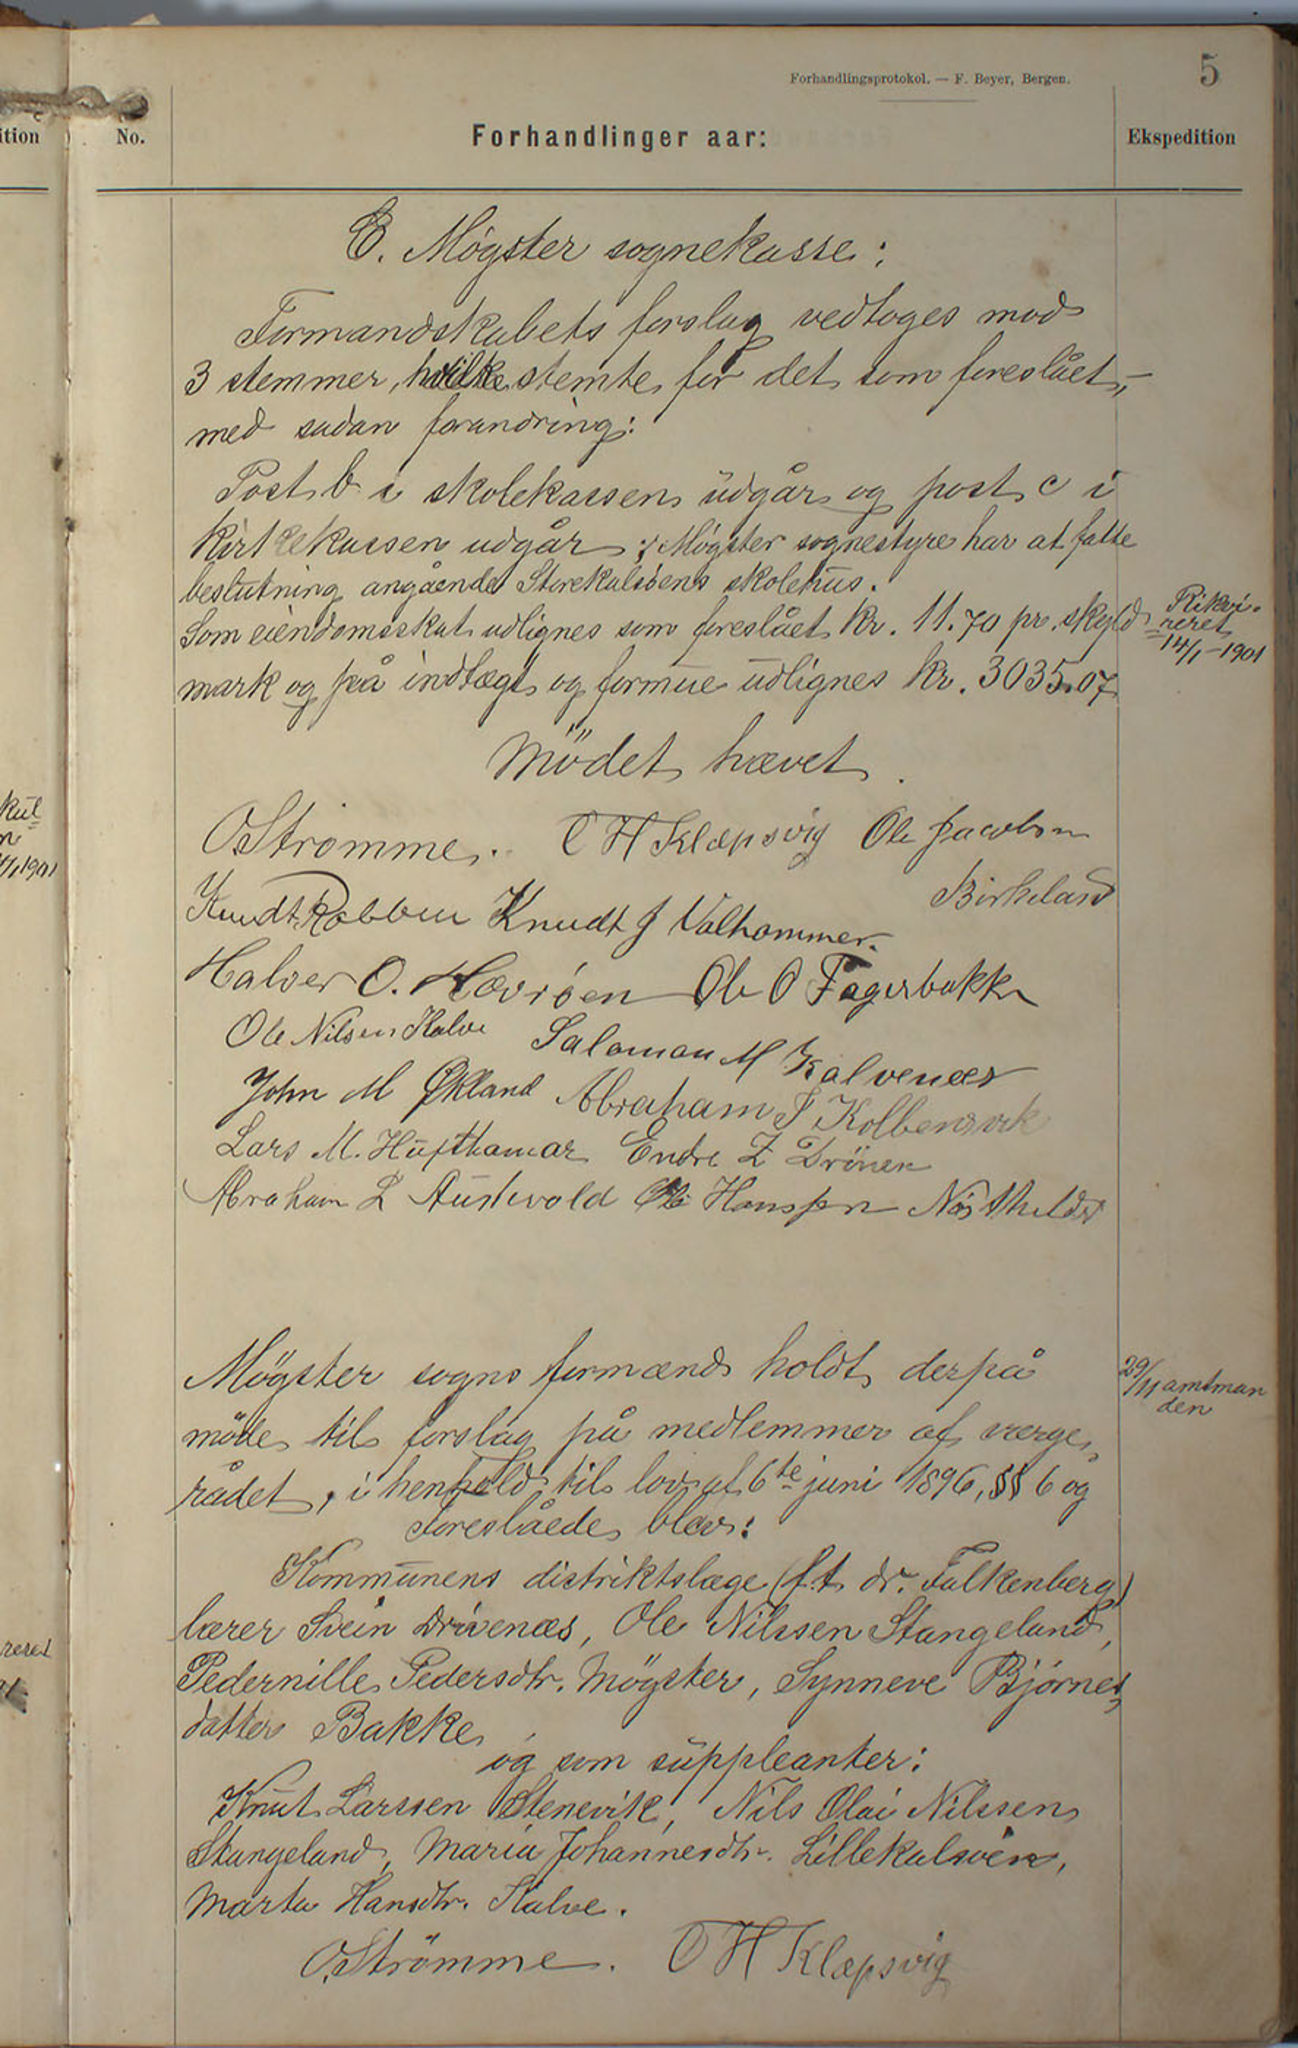 Forhandlingsprotokol. — F. Beyer, Bergen.
5
ition
No.
Forhandlinger aar:
Ekspedition
E. Møgster sognekasse:
Formandskabets forslag vedtoges mod
3 stemmer, hvilke stemte for det som foreslået, –
med sadan forandring:
Post b i skolekassen udgår og post c i
kirkekassen udgår : Møgster sognestyre har at fatte
beslutning angående Storekalsöens skolehus.
Som eiendomsskat udlignes som foreslået kr. 11.70 pr. skyld
Rikvi-
reret
14/1-1901
mark og på indtægt og formue udlignes kr. 3035.07
Mödet hævet.
O Strømme. O H Klæpsvig Ole Jacobsen
Birkeland
Knudt Robben Knudt J Valhammer.
Halver O. Hevrøen Ole O Fagerbakke
Ole Nilsen Kalve Salomon M Kalvenæs
John M Økland Abraham J Kolbensvik
Lars M. Hufthamar Endre Z Drönen
Abraham L Austevold Ole Hanssen
Mögster sogns formænd holdt derpå
29/11 amtman
den
möde til forslag på medlemmer af værge-
rådet, i henhold til lov af 6te juni 1896, §§ 6 og
foreslåede blev:
Kommunens distriktslæge (f.t. dr. Falkenberg)
lærer Svein Drivenæs, Ole Nilssen Stangeland,
Pedernille Pedersdtr. Mögster, Synneve Bjørnes-
datter Bakke
og som suppleanter:
Knut Larssen Stenevik, Nils Olai Nilssen
Stangeland, Maria Johannesdtr. Lillekalsöen,
Marta Hansdtr. Kalve.
O. Strömme. O H Klæpsvig